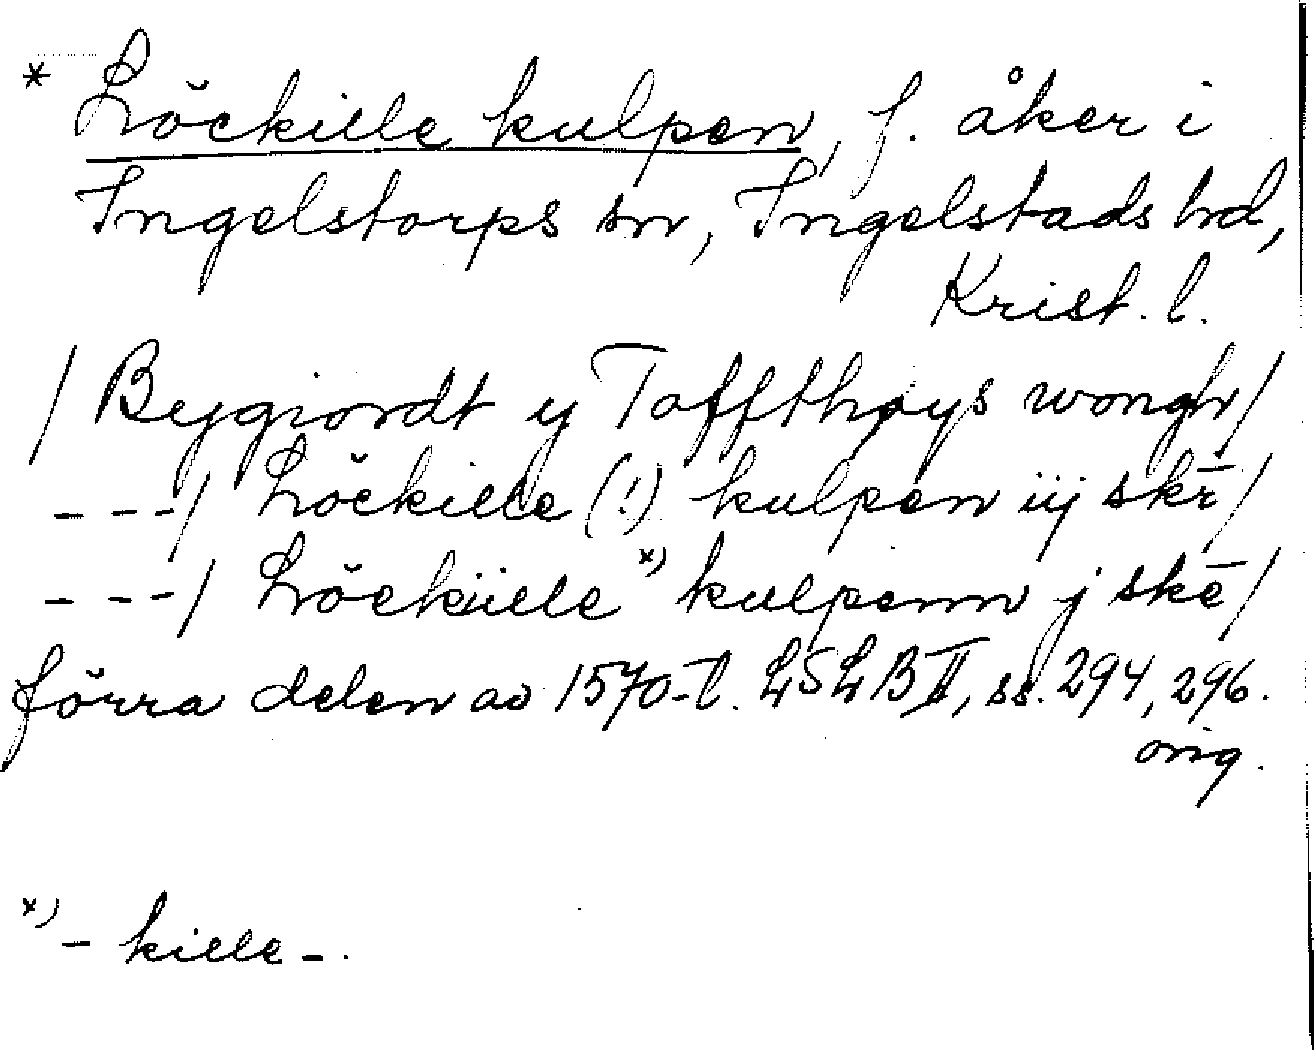 * Löckille kulpen, f. åker i
Ingelstorps sn, Ingelstads hd,
Krist. l.
/ Bygiordt y Toffthøys wongh/
- - -/ Löckille (!) kulpen iij skr̄/
- - -/ Löckiille *) kulpenn j skē/
förra delen av 1570-t. LSLB II, ss. 294, 296.
orig.
*) - kille -.